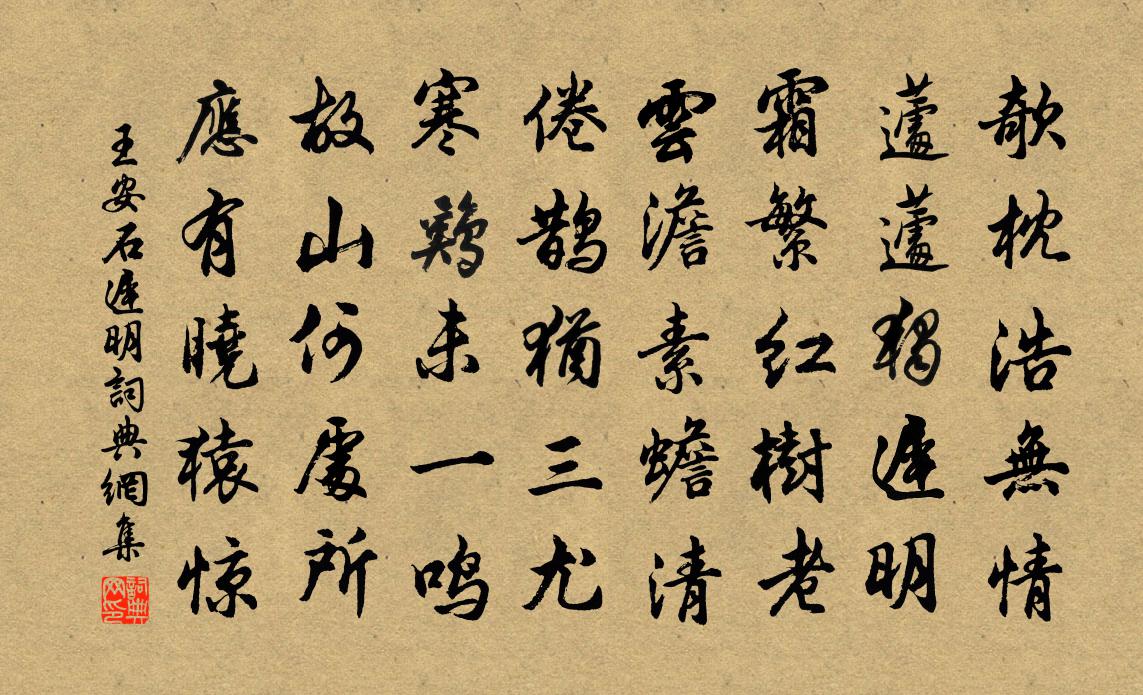 欹枕浩無情
蘧蘧獨遲明
霜繁紅樹老
雲澹素蟾清
倦鵲猶三尤
寒鷄未一鳴
故山何處所
應有曉猿惊
王安石遲明詞典網集
詞典网印